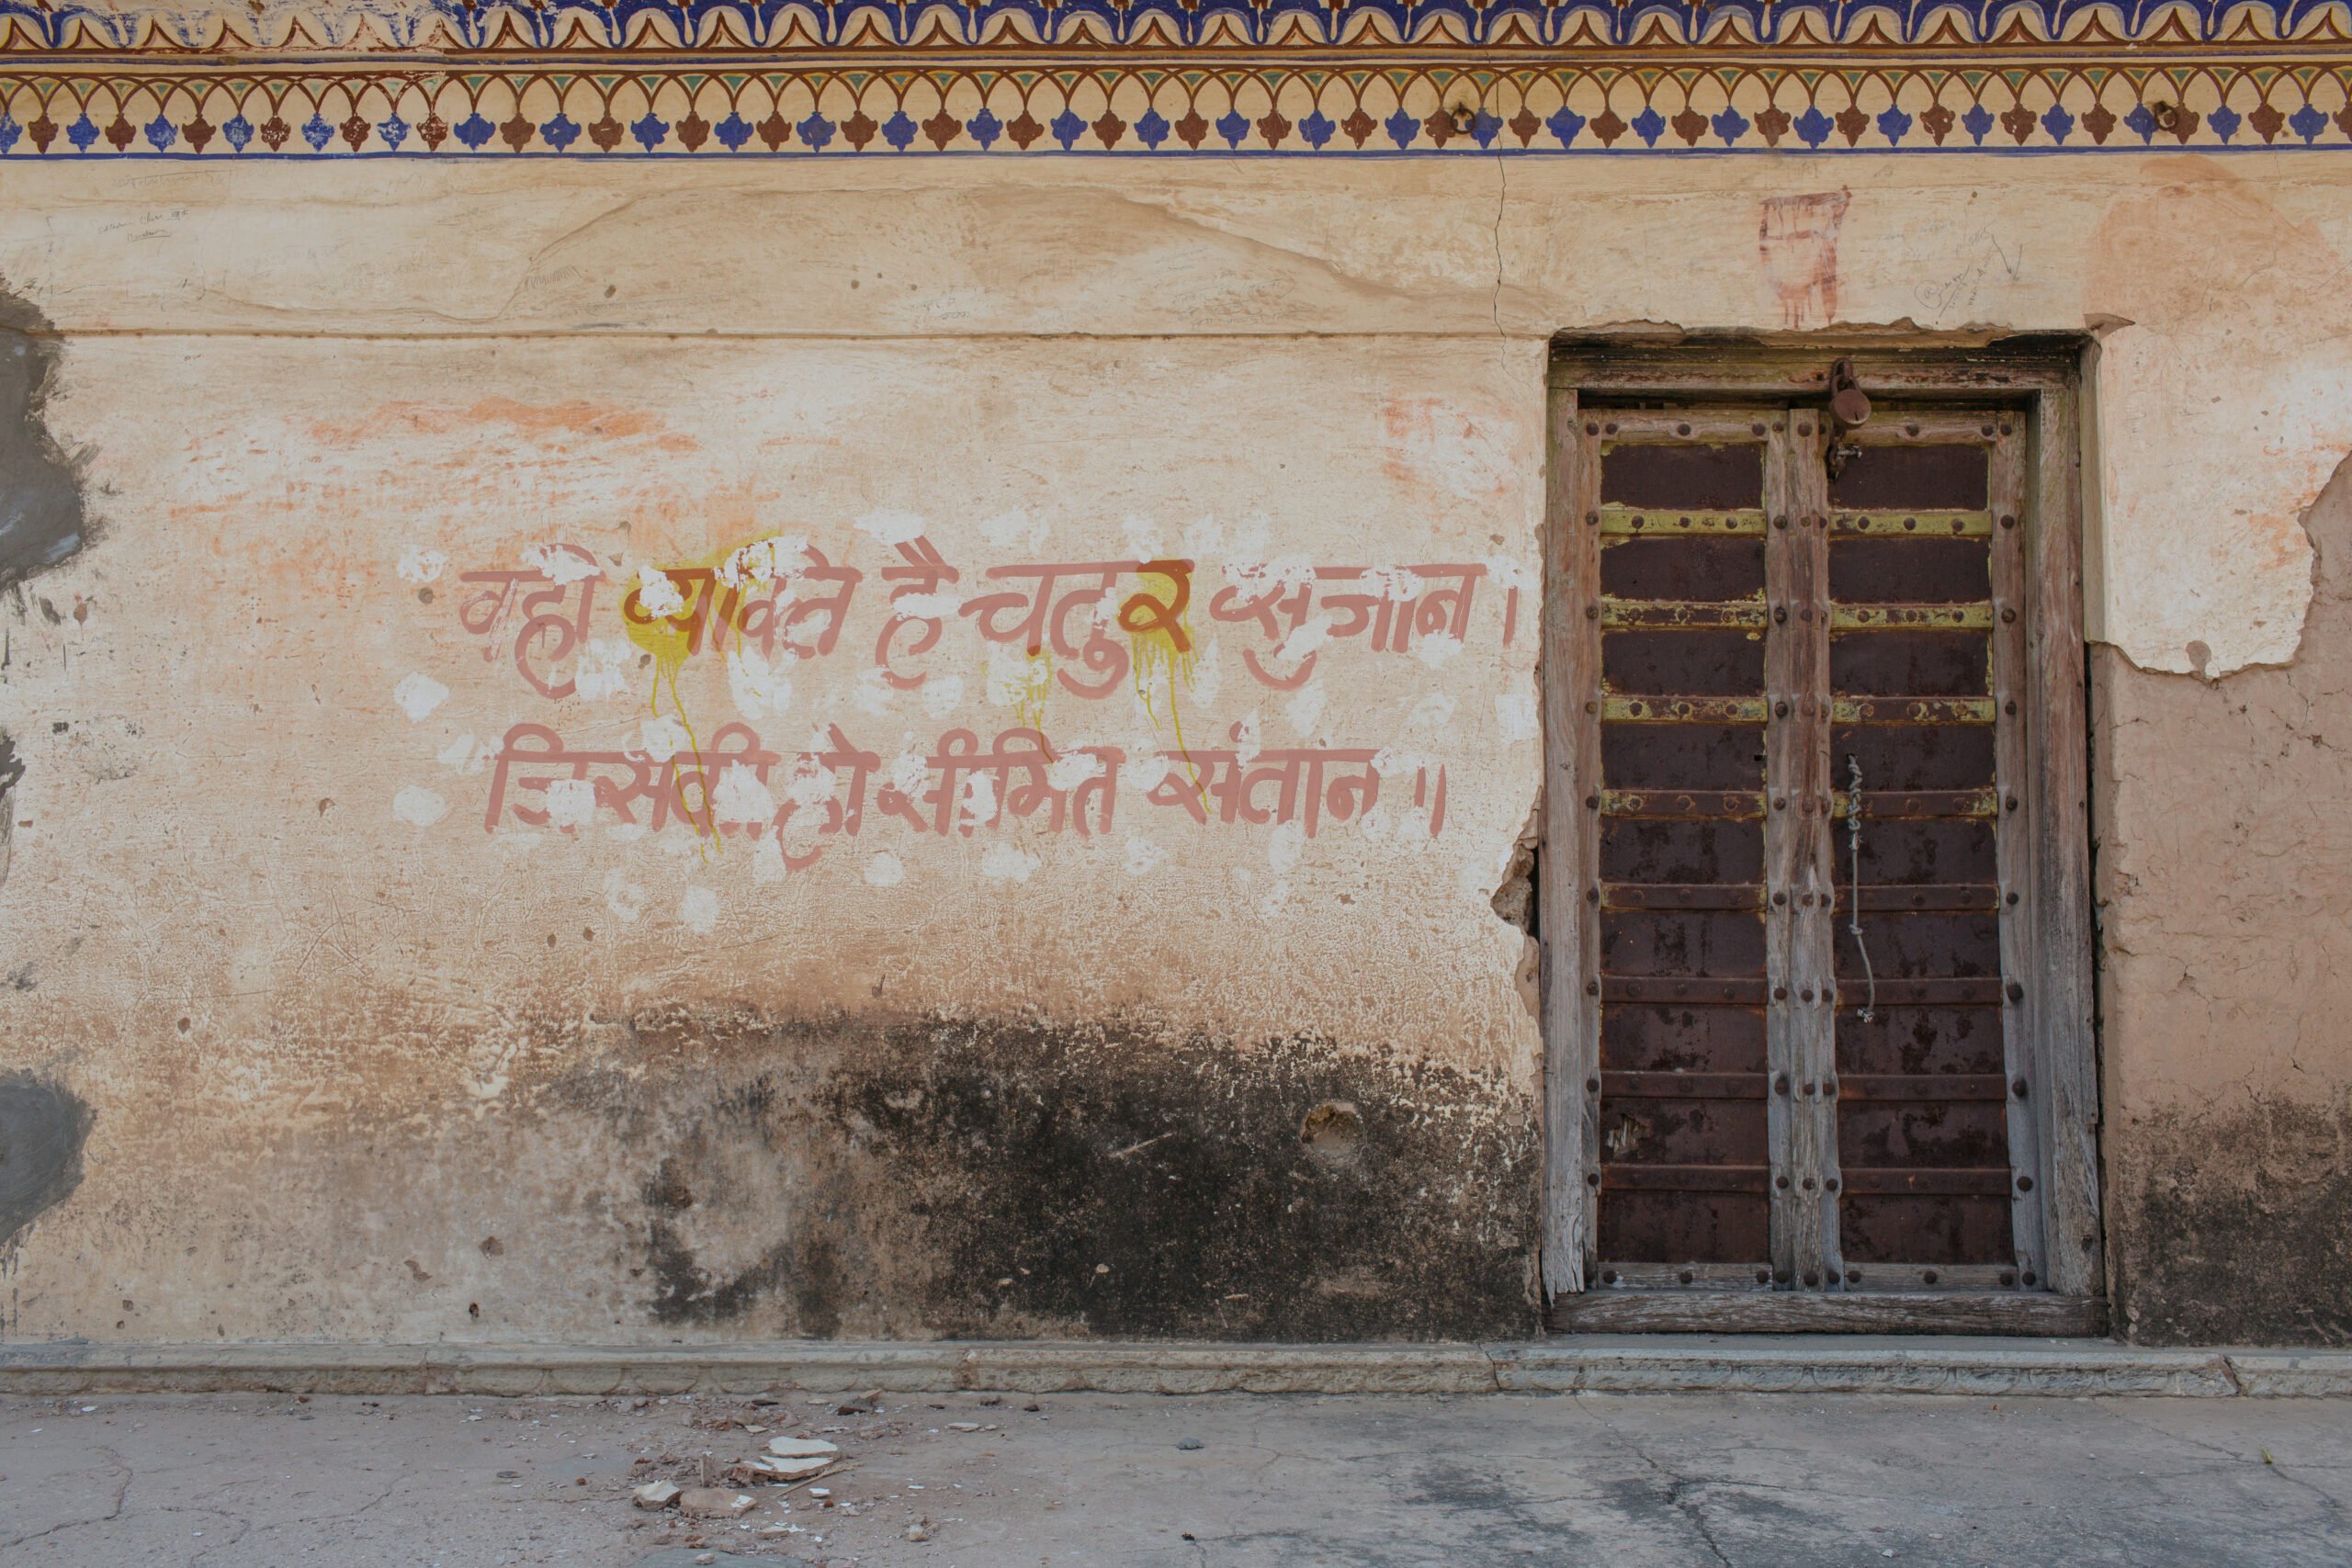 वही व्यक्ति है चतुर सुजान।
जिसकी हो सीमित संतान॥